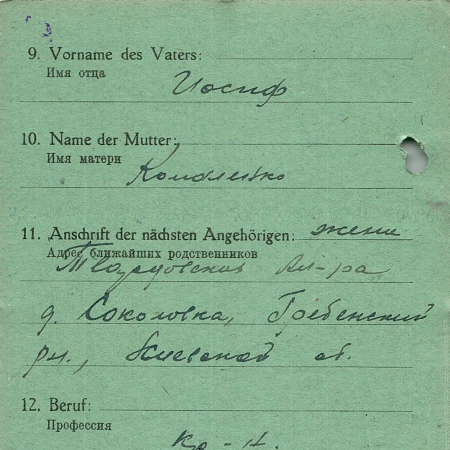 9. Vorname des Vaters:
Имя отца
Иосиф
10. Name der Mutter:
Имя матери
Коваленко
11. Anschrift der nächsten Angehörigen: жени
Адрес ближайших родственников
д. Соколовка, Гребенский
рн., Киевской об.
12. Beruf:
Профессия
кр-н.